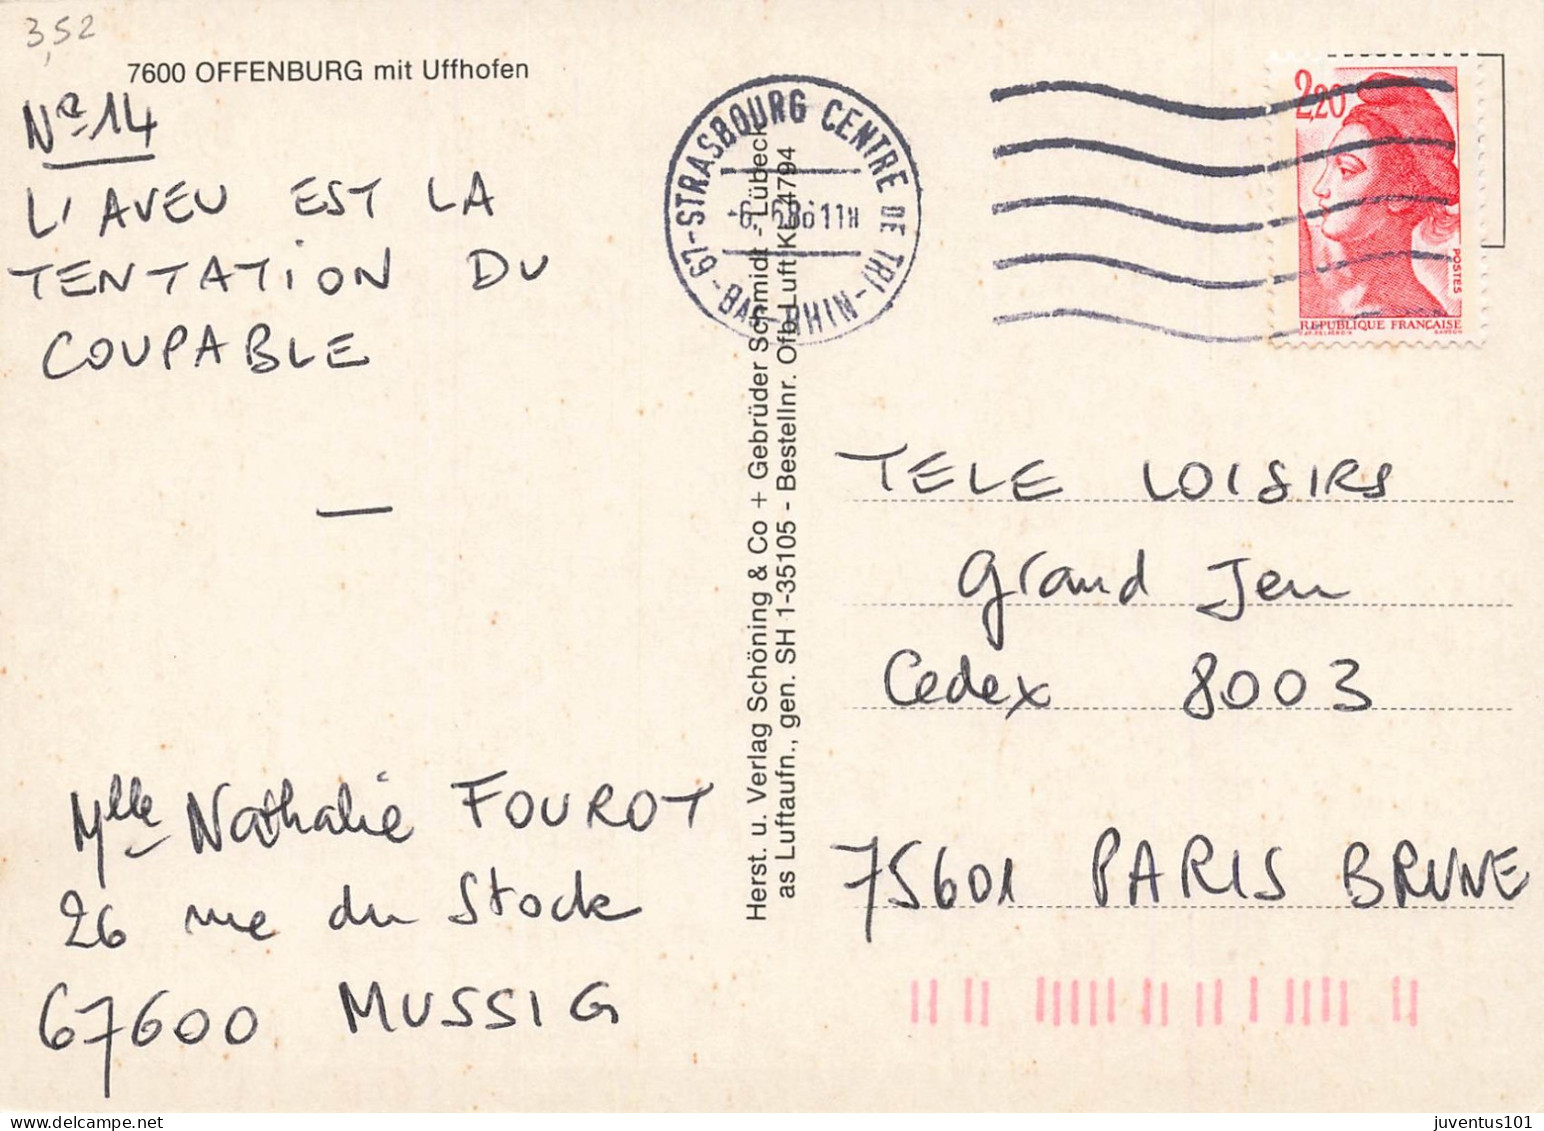 3,52
7600 OFFENBURG mit Uffhofen
Nº 14
L'AVEU EST LA
TENTATION DU
COUPABLE
—
Mlle Nathalie FOUROT
26 rue du Stock
67600 MUSSIG
Herst. u. Verlag Schöning & Co + Gebrüder Schmidt - Lübeck
as Luftaufn., gen. SH 1-35105 - Bestellnr. Ofb Luft KL 4794
67-STRASBOURG CENTRE DE TRI-
86 11H
-BAS-RHIN-
2,20
POSTES
REPUBLIQUE FRANÇAISE
TELE LOISIRS
Grand Jeu
Cedex 8003
75601 PARIS BRUNE
juventus101